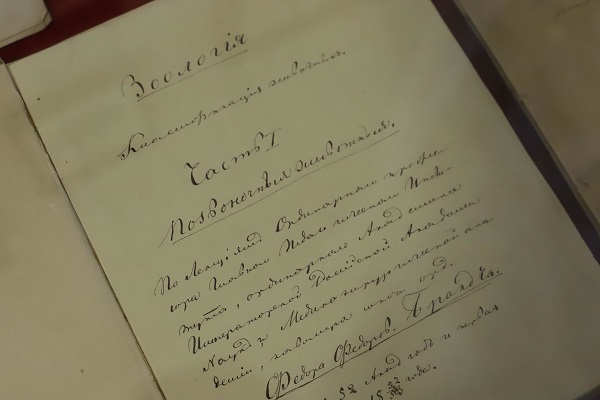 Зоологія
Классификація животныхъ.
Часть I
Позвоночныя животныя.
По Лекціямъ Ординарнаго профес
сора Главнаго Педагогическаго Инсти-
тута, ординарнаго Академика
Императорской Россійской Академіи
Наукъ и Медико-хирургической ака
деміи, кавалера
Федора Федоров. Брандта.
Акад годъ и первая
года.